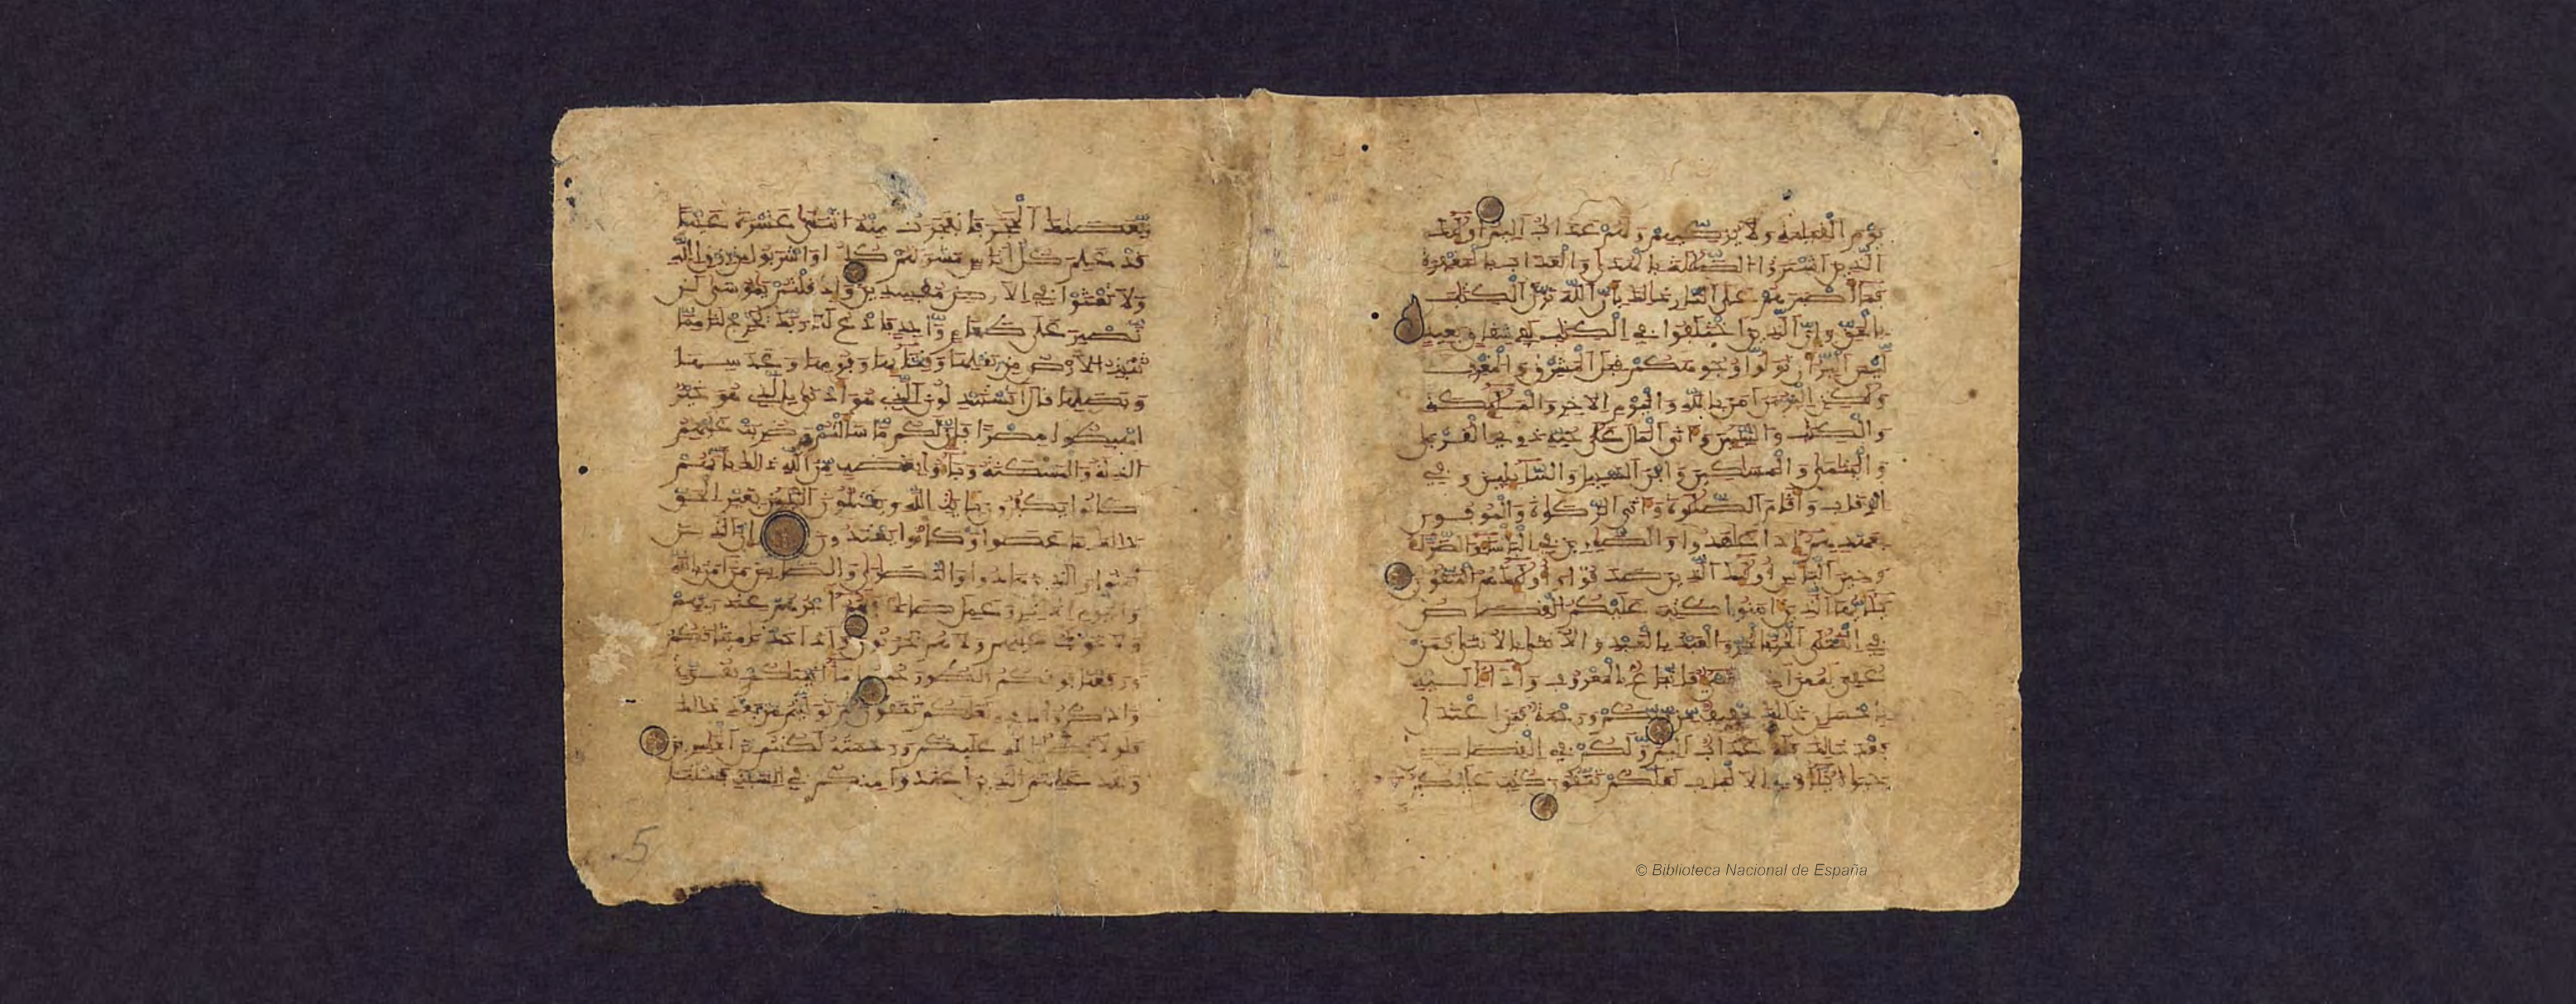 يوم القيمة ولا يزكيهم ولهم عذاب اليم اولئك
الذين اشتروا الضللة بالهدى والعذاب بالمغفرة
فما اصبرهم على النار ذلك بان الله نزل الكتب
بالحق وان الذين اختلفوا في الكتب لفي شقاق بعيد
ليس البر ان تولوا وجوهكم قبل المشرق والمغرب
ولكن البر من امن بالله واليوم الاخر والملئكة
والكتب والنبيين واتى المال على حبه ذوي القربى
واليتمى والمسكين وابن السبيل والسايلين وفي
الرقاب واقام الصلوة واتى الزكوة والموفون
بعهدهم اذا عهدوا والصبرين في الباسا والضرا
وحين الباس اولئك الذين صدقوا واولئك هم المتقون
يايها الذين امنوا كتب عليكم القصاص
في القتلى الحر بالحر والعبد بالعبد والانثى بالانثى فمن
عفي له من اخيه فاتباع بالمعروف واداء اليه
باحسن ذلك تخفيف من ربكم ورحمة فمن اعتدى
بعد ذلك فله عذاب اليم ولكم في القصاص
حيوة ياولي الالبب لعلكم تتقون كتب عليكم
بعصاك الحجر فانفجرت منه اثنتا عشرة عينا
قد علم كل اناس مشربهم كلوا واشربوا من رزق الله
ولا تعثوا في الارض مفسدين واذ قلتم يموسى لن
نصبر على طعام واحد فادع لنا ربك يخرج لنا مما
تنبت الارض من بقلها وقثايها وفومها وعدسها
وبصلها قال اتستبدلون الذي هو ادنى بالذي هو خير
اهبطوا مصرا فان لكم ما سالتم وضربت عليهم
الذلة والمسكنة وباءو بغضب من الله ذلك بانهم
كانوا يكفرون بايت الله ويقتلون النبيين بغير الحق
ذلك بما عصوا وكانوا يعتدون ان الذين
امنوا والذين هادوا والنصرى والصبين من امن بالله
واليوم الاخر وعمل صلحا فلهم اجرهم عند ربهم
ولا خوف عليهم ولا هم يحزنون واذ اخذنا ميثقكم
ورفعنا فوقكم الطور خذوا ما اتينكم بقوة
واذكروا ما فيه لعلكم تتقون ثم توليتم من بعد ذلك
فلولا فضل الله عليكم ورحمته لكنتم من الخسرين
ولقد علمتم الذين اعتدوا منكم في السبت فقلنا
5
© Biblioteca Nacional de España